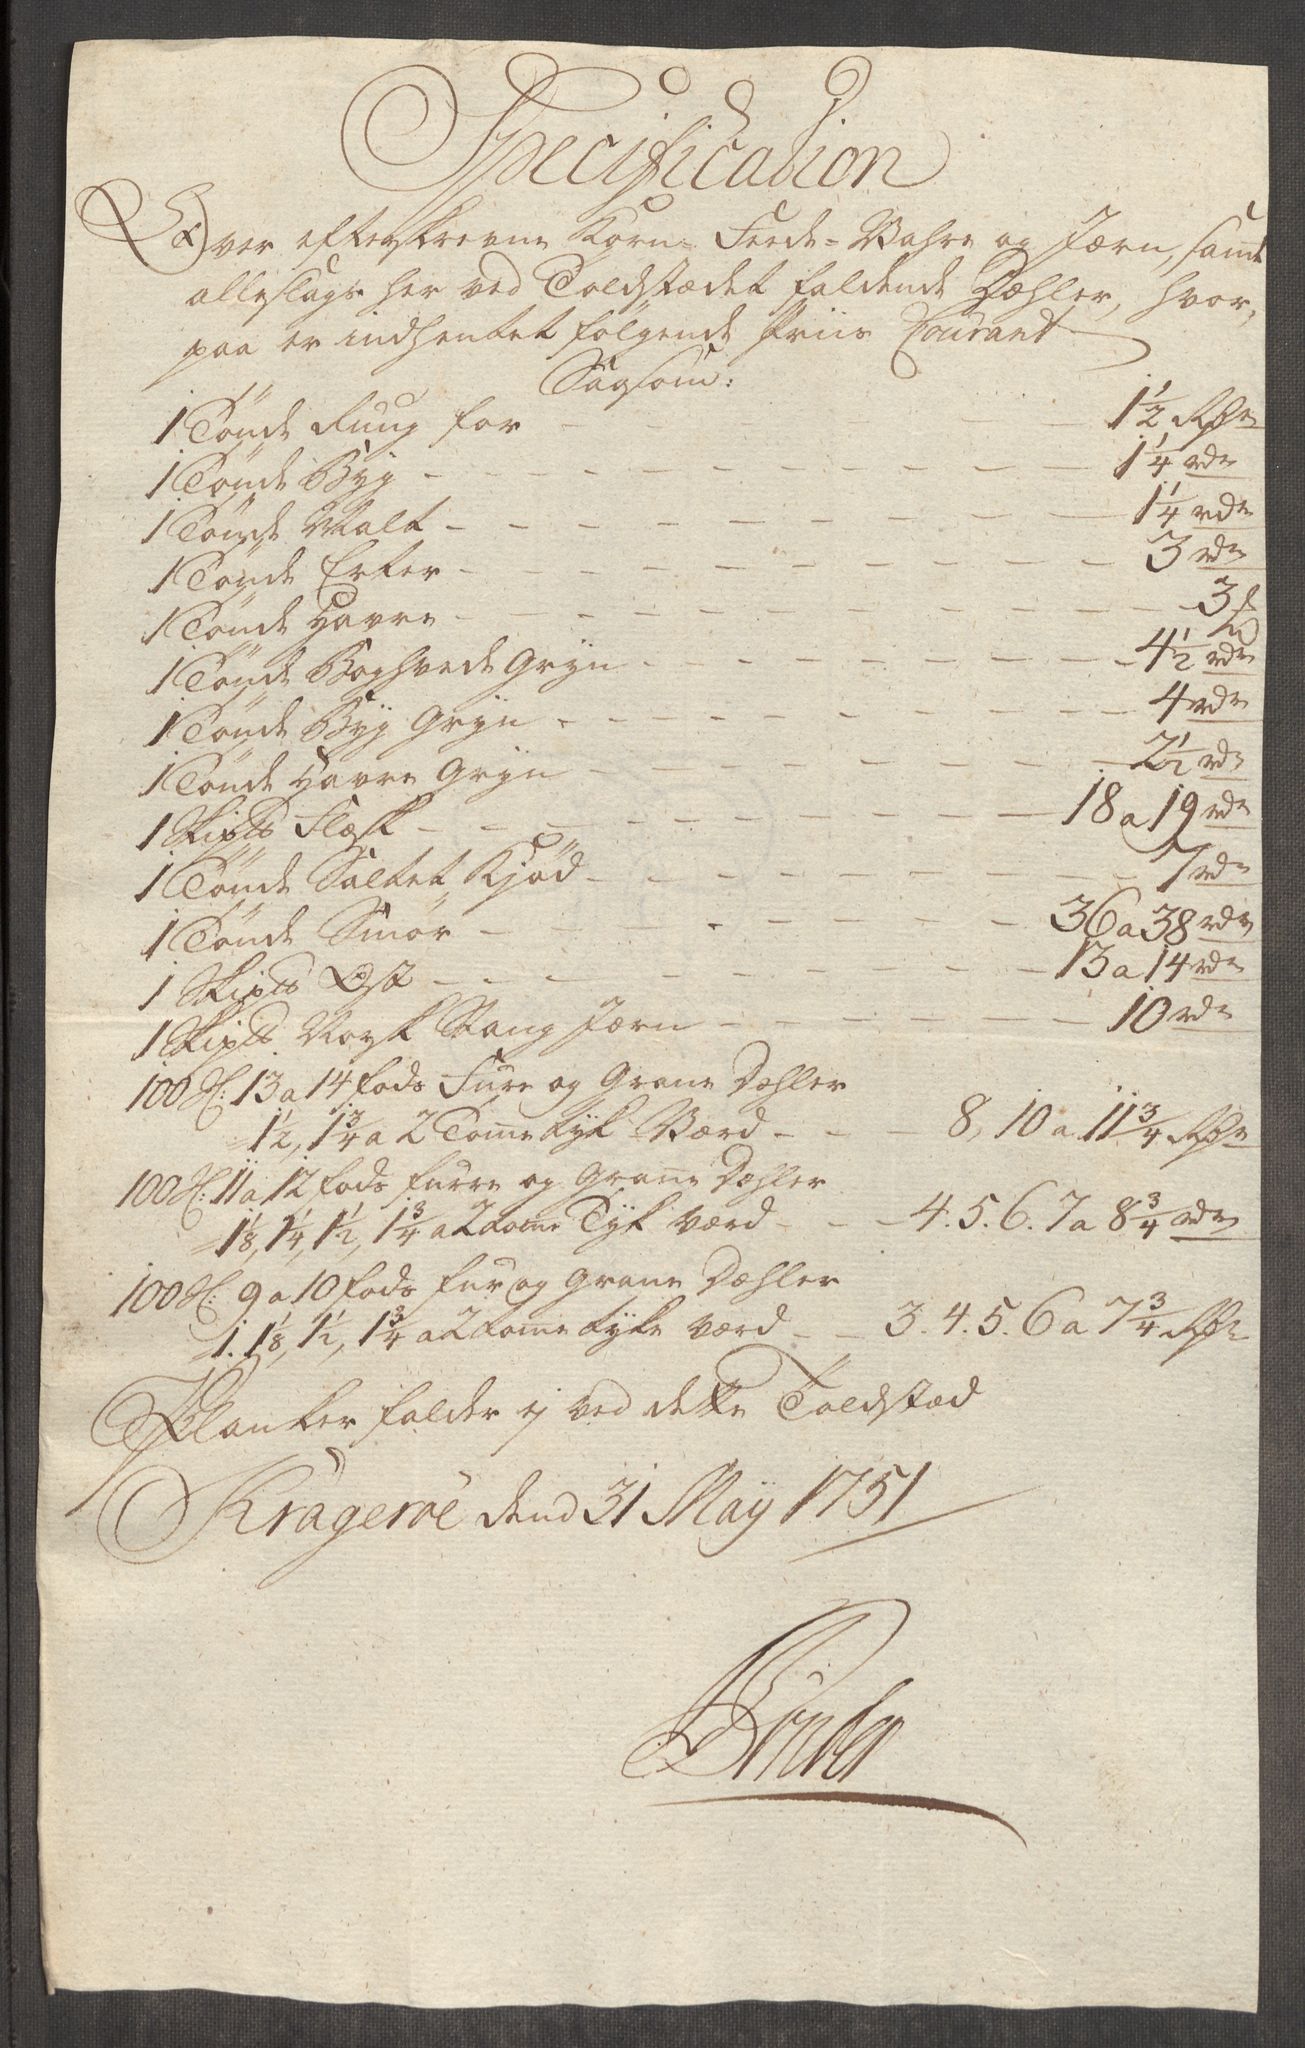 Specification
Over efterskrevne Korn- Feede-Wahre og Jærn, samt
alleslags her ved Toldstædet faldende Dæhler, hvor,
paa er indhentet følgende Priis Courant
Saasom:
1 Tønde Ruug for - - - 1 1/2 Rdr
1 Tønde Byg - - - 1 1/4 rdr
1 Tønde Malt - - - 1 1/4 rdr
1 Tønde Erter - - - 3 rdr
1 Tønde Havre - - - 3
1 Tønde Boghvede Gryn - - - 4 1/2 rdr
1 Tønde Byg Gryn - - - 4 rdr
1 Tønde Havre Gryn - - - 2 1/2 rdr
1 Skip℔ Flæsk - - - 18 a 19 rdr
1 Tønde Saltet Kjød - - - 7 rdr
1 Tønde Smør - - - 36 a 38 rdr
1 Skip℔ Ost - - - 13 a 14 rdr
1 Skip℔ Norsk Stang Jærn - - - 10 rdr
100 St: 13 a 14 fods Fure og Grane Dæhler
1 1/2, 1 3/4 a 2 Tomme tyk Værd - - - 8, 10 a 11 3/4 Rdr
100 St: 11 a 12 fods furre og Grane Dæhler
1 1/8, 1 1/4, 1 1/2, 1 3/4 a 2 tomme Tyk værd - - - 4. 5. 6. 7 a 8 3/4 rdr
100 St: 9 a 10 fods fur og Grane Dæhler
1. 1 1/8, 1 1/2, 1 3/4 a 2 tomme tykke værd - - 3. 4. 5. 6 a 7 3/4 Rdr
Planker falder ej ved dette Toldstæd
Krageröe dend 31 Maÿ 1751